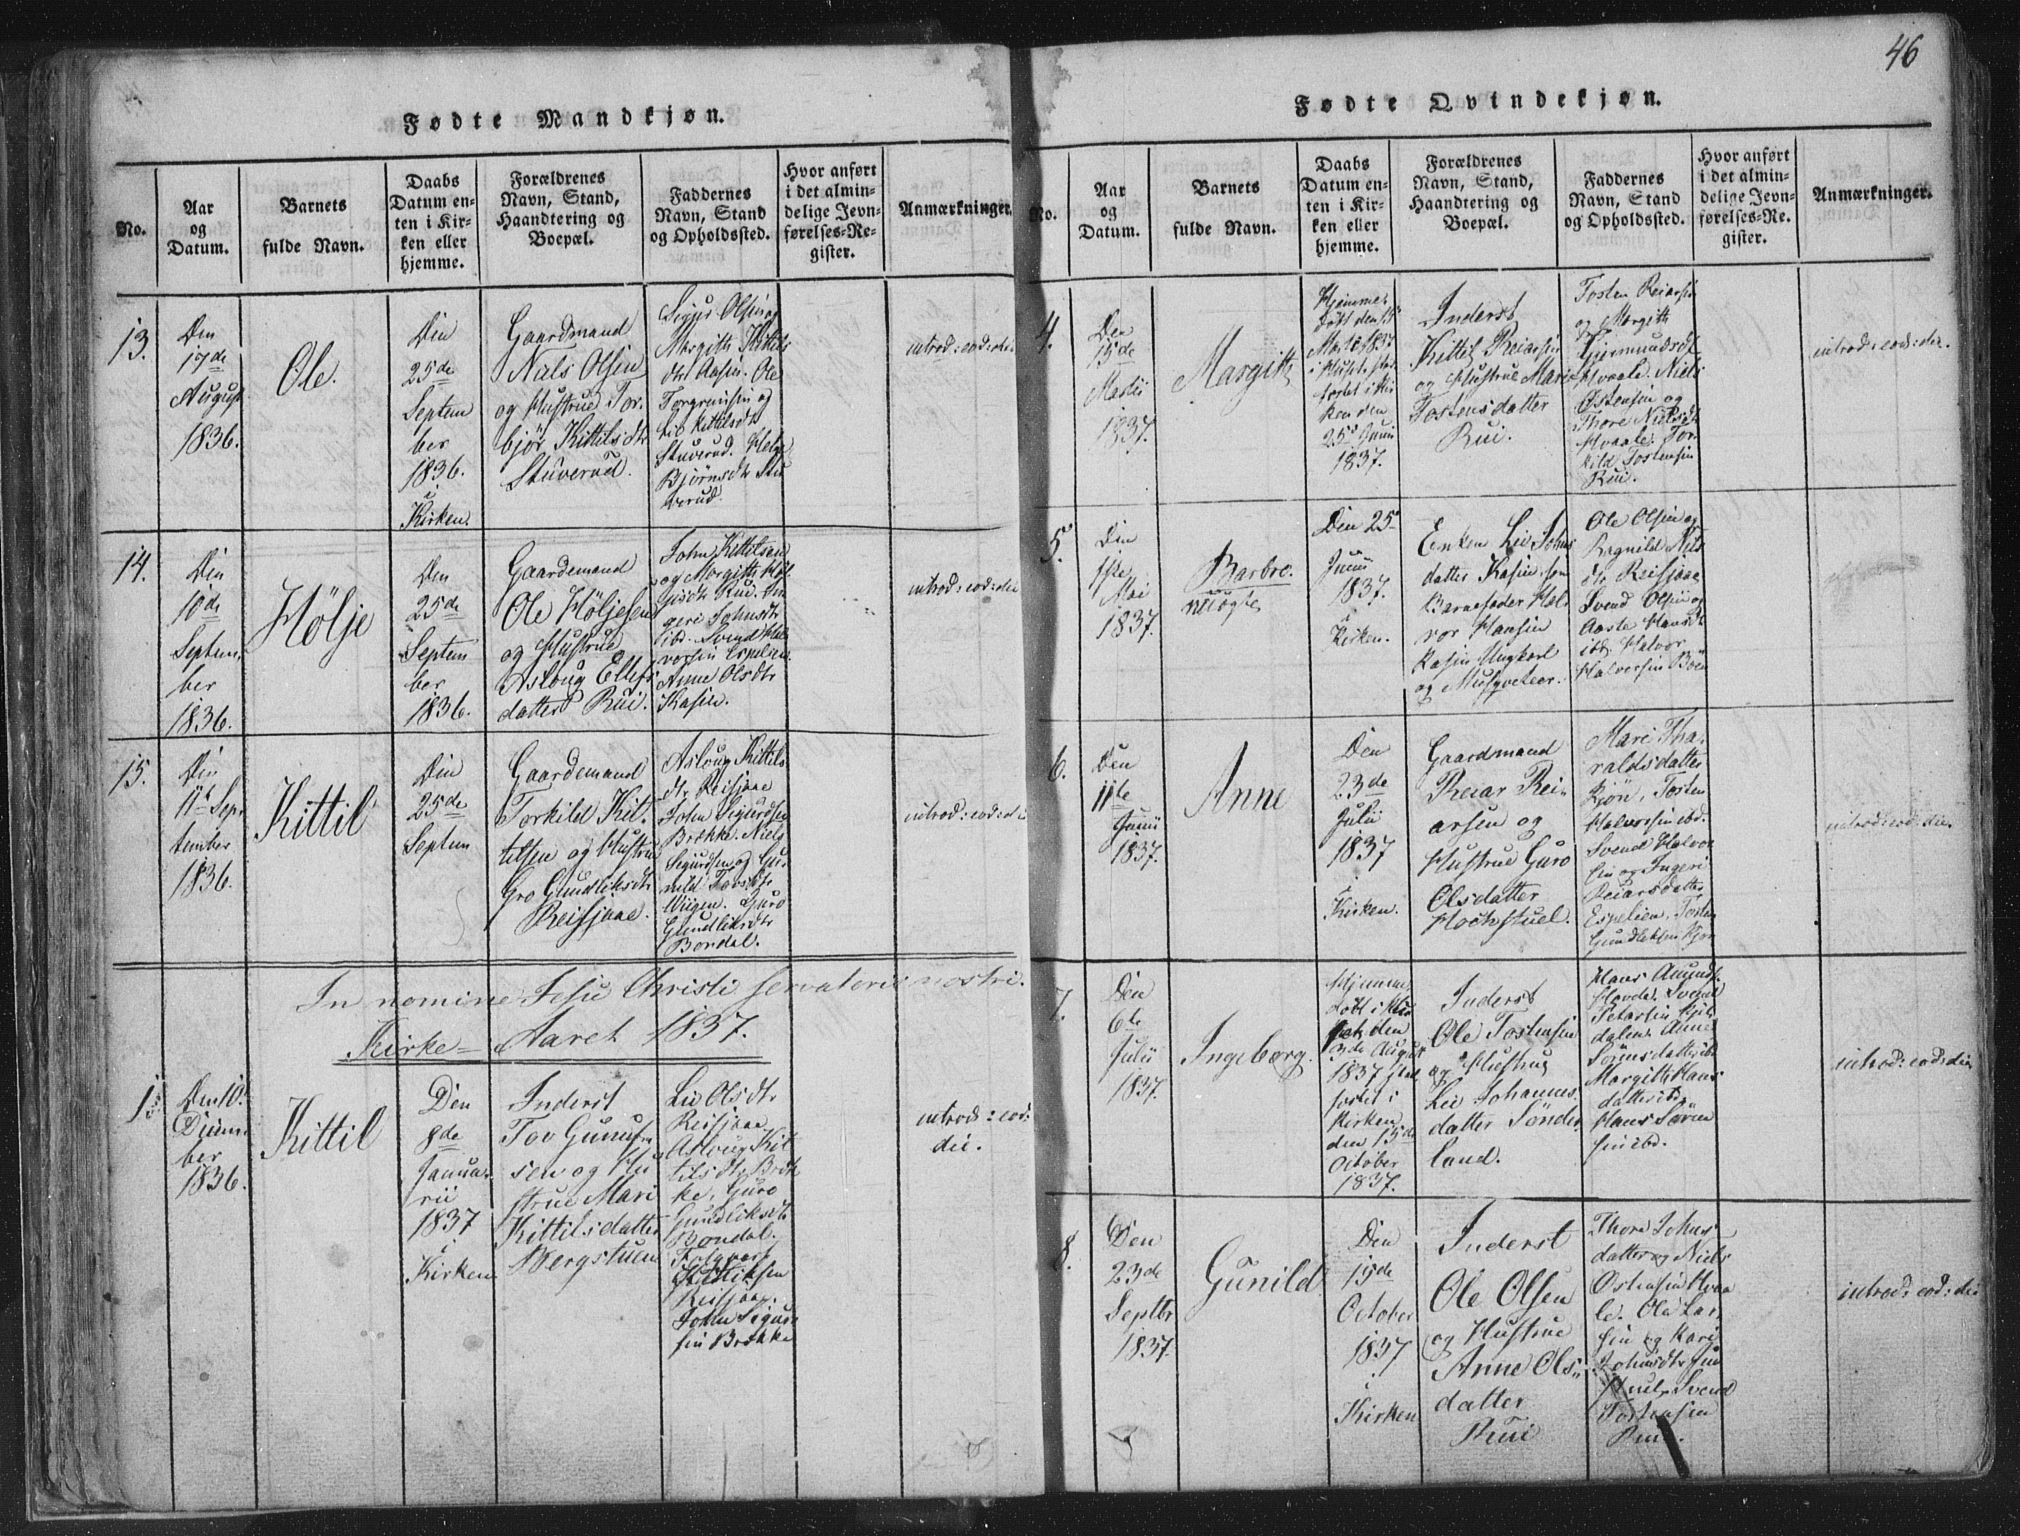 46
Fødte Mandkjøn.
No.
Aar
og
Datum.
Barnets
fulde Navn.
Daabs
Datum en-
ten i Kir-
ken eller
hjemme.
Forældrenes
Navn, Stand,
Haandtering og
Boepæl.
Faddernes
Navn, Stand
og Opholdssted.
Hvor anført
i det almin-
delige Jevn-
førelses-Re-
gister.
Anmærkninger.
13.
Den
17de
August
1836.
Ole.
Den
25de
Septem
ber
1836.
i
Kirken.
Gaardmand
Niels Olsen
og Hustrue Tor-
bjør Kittilsdtr
Stuverud.
Sigur Olsen og
Margith Kittils
dtr Aasen. Ole
Torgrimsen og
Liv Kittilsdtr
Stuverud. Helge
Bjørnsdtr Stu
verud.
introd: eod: die
14.
Den
10de
Septem
ber
1836.
Hölje
Den
25de
Septem
ber
1836.
Gaardemand
Ole Höljesen
og Hustrue
Aslaug Ellefs
datter Rui.
John Kittilsen
og Margith Höl
jesdtr Rui. In
geri Johnsdtr
ibd. Svend Hal
vorsen Espelien
Anne Olsdtr
Kasin.
introd: eod: die
15.
Den
11te Sep
tember
1836.
Kittil
Den
25de
Septem
Gaardemand
Torkild Kit-
tilsen og Hustrue
Gro Gundleiksdtr
Reisjaae.
Aslaug Kittils
dtr Reisjaae
John Sigurdsen
Brække. Niels
Sigurdsen og Gu
nild Tovsdtr
Wiigen. Guro
Gundleiksdtr
Bondal.
introd: eod: die
In nomine Jesu Christi servatoris nostri.
Kirke- Aaret 1837.
1.
Den 10.
Decem
ber
1836.
Kittil
Den
8de
Janua-
rii
1837
i
Kirken
Inderst
Tov Gunuf
sen og Hu
strue Mari
Kittilsdatter
Bergstuen
Liv Olsdtr
Reisjaae
Aslaug Kit
tilsdtr Bræk
ke, Guro
Gundleiksdtr
Bondal.
Kittilsen
Reisjaae.
John Sigur
sen Brække
introd: eod:
die.
Fødte Qvindekjøn.
No.
Aar
og
Datum.
Barnets
fulde Navn.
Daabs
Datum en-
ten i Kir-
ken eller
hjemme.
Forældrenes
Navn, Stand,
Haandtering og
Boepæl.
Faddernes
Navn, Stand
og Opholdssted.
Hvor anført
i det almin-
delige Jevn-
førelses-Re-
gister.
Anmærkninger.
4.
Den
15de
Martii
1837.
Margith
Hjemme-
døbt den
Marts 1837
i Huset, stad
fæstet i Kir
ken den
25de Juni
1837.
Inderst
Kittil Reiarsen
og Hustrue Mari
Tostensdatter
Rui.
Tosten Reiarsen
og Margith
Gjermundsdtr
Hvaale. Niels
Østensen og
Thore Nielsdtr
Hvaale. Tor
kild Tostensen
Rui.
introd: eod: die.
5.
Den
1ste
Mai
1837.
Barbro.
uægte
Den 25
Junii
1837.
i
Kirken.
Enken Liv Johns
datter Kasin, som
Barnefader Hal
vor Hansen
Kasin Ungkarl
og Musqveteer.
Ole Olsen og
Ragnild Niels
dtr Reisjaae
Svend Olsen og
Aaste Hansdtr
ibd. Halvor
Halvorsen Böen
6.
Den
11te
Junii
1837.
Anne
Den
23de
Julii
1837
i
Kirken.
Gaardmand
Reiar Rei-
arsen og
Hustrue Guro
Olsdatter
Hochstuel.
Mari Tha-
raldsdatter
Bjön, Tosten
Halvorsen ibd.
Svend Halvor
sen og Ingeri
Reiarsdatter
Espelien. Tosten
Gundleksen
introd: eod: die.
7.
Den
6te
Julii
1837.
Ingeborg.
Hjemme
døbt i Hu
set den
3de August
1837 stad
fæstet i
Kirken
den 15de
October
1837.
Inderst
Ole Tostensen
og Hustrue
Liv Johannes
datter Sönder
land.
Hans Amunds.
Hovde. Svend
Petersen
dalen. Anne
Sörensdatter ibd.
Margith Hans
datter ibd.
Hans Sören
sen ibd.
introd: eod: die
8.
Den
23de
Septbr
1837.
Gunild
Den
15de
October
1837
i
Kirken
Inderst
Ole Olsen
og Hustrue
Anne Ols-
datter
Rui
Thore Johns
datter og Niels
Østensen Hvaa
le. Ole Lar
sen og Kari
Johnsdtr
Svend
Tostensen
Rui.
introd: eod: die